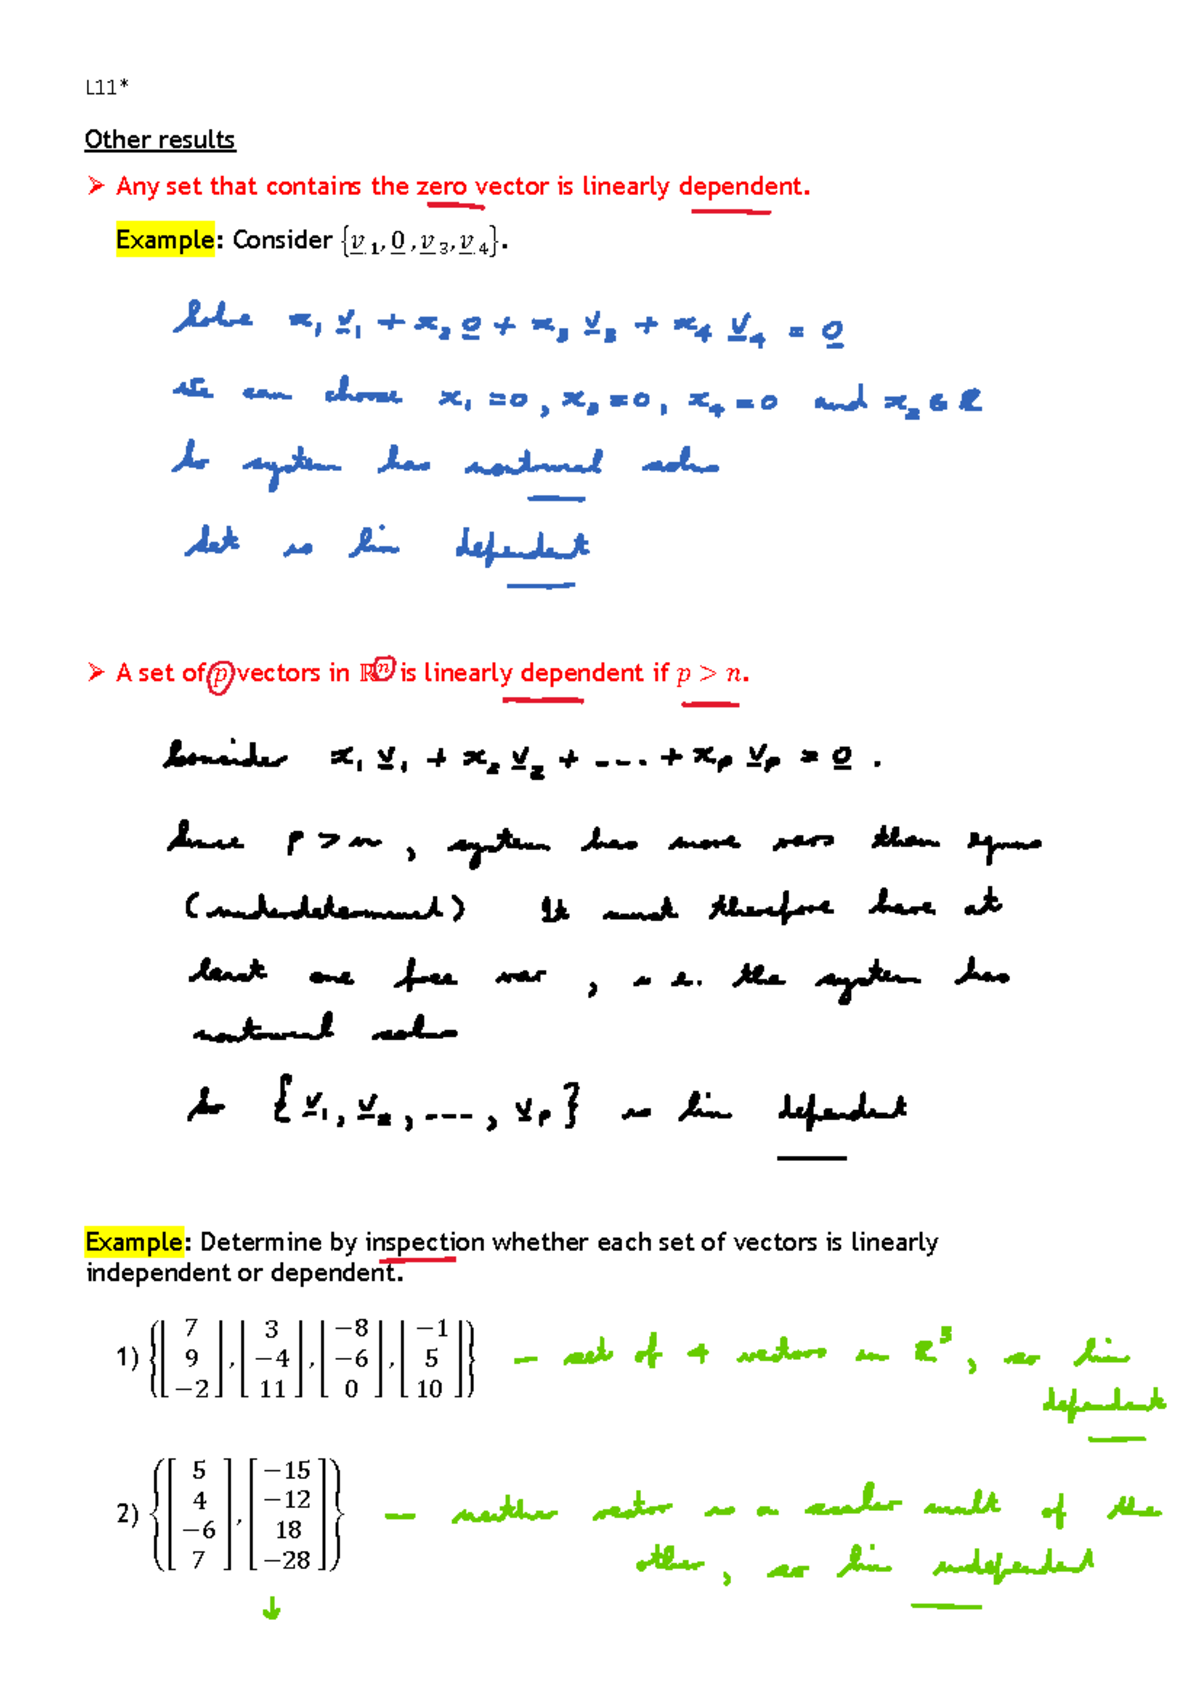 L11*
Other results
➢ Any set that contains the zero vector is linearly dependent.
Example: Consider {v₁, 0, v₃, v₄}.
Solve x₁ v₁ + x₂ 0 + x₃ v₃ + x₄ v₄ = 0
We can choose x₁ = 0, x₃ = 0, x₄ = 0 and x₂ ∈ ℝ
So system has nontrivial solns
Set is lin dependent
➢ A set of p vectors in ℝⁿ is linearly dependent if p > n.
Consider x₁ v₁ + x₂ v₂ + --- . + xₚ vₚ = 0 .
Since p > n, system has more vars than eqns
(underdetermined) It must therefore have at
least one free var, i.e. the system has
nontrivial solns
So {v₁, v₂, ---, vₚ} is lin dependent
Example: Determine by inspection whether each set of vectors is linearly
independent or dependent.
1) {[7 9 −2], [3 −4 11], [−8 −6 0], [−1 5 10]} – set of 4 vectors in ℝ³, so lin
dependent
2) {[5 4 −6 7], [−15 −12 18 −28]} – neither vector is a scalar mult of the
other, so lin independent
↓